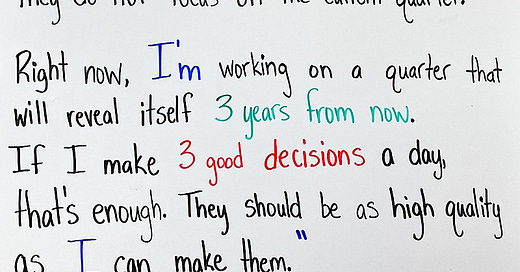 They do not focus on the current quarter.
Right now, I'm working on a quarter that
will reveal itself 3 years from now.
If I make 3 good decisions a day,
that's enough. They should be as high quality
as I can make them."